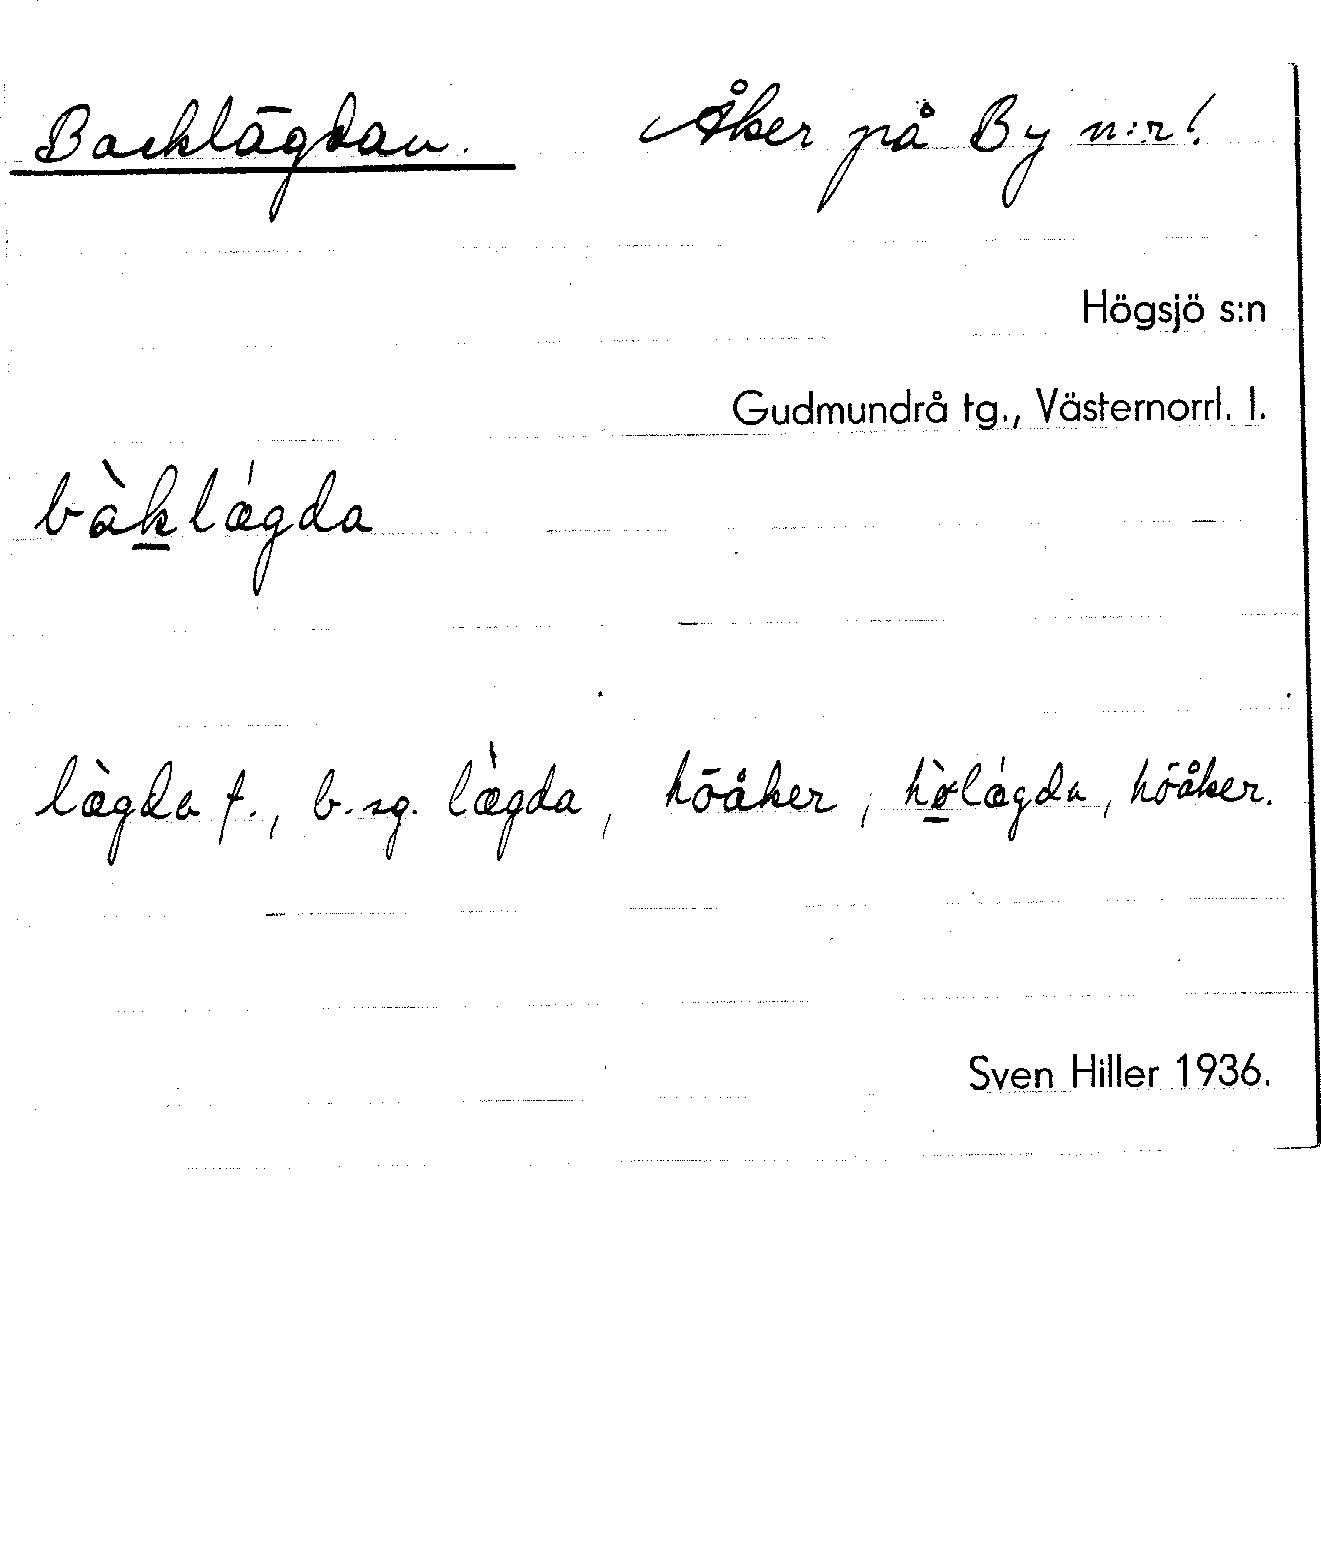 Backlägdan. Åker på By n:r 1.
Högsjö s:n
Gudmundrå tg., Västernorrl. l.
bàklǽgda
læ̀gda f., b.sg. læ̀gda, höåker, hø̀lǽgda, höåker.
Sven Hiller 1936.